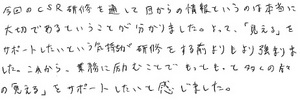 今回のCSR研修を通して目からの情報というのは本当に
大切であるということが分かりました。よって、「見える」を
サポートしたいという気持ちが研修をする前よりもより強まりま
した。これから、業務に励むことでもっともっと多くの方々
の見える」をサポートしたいて感じました。